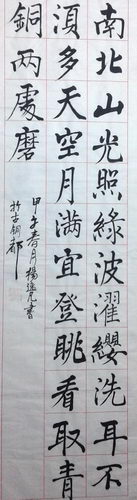 南北山光照綠波濯纓洗耳不
須多天空月满宜登眺看取青
銅两處磨
甲午春月楊
書
於古銅都